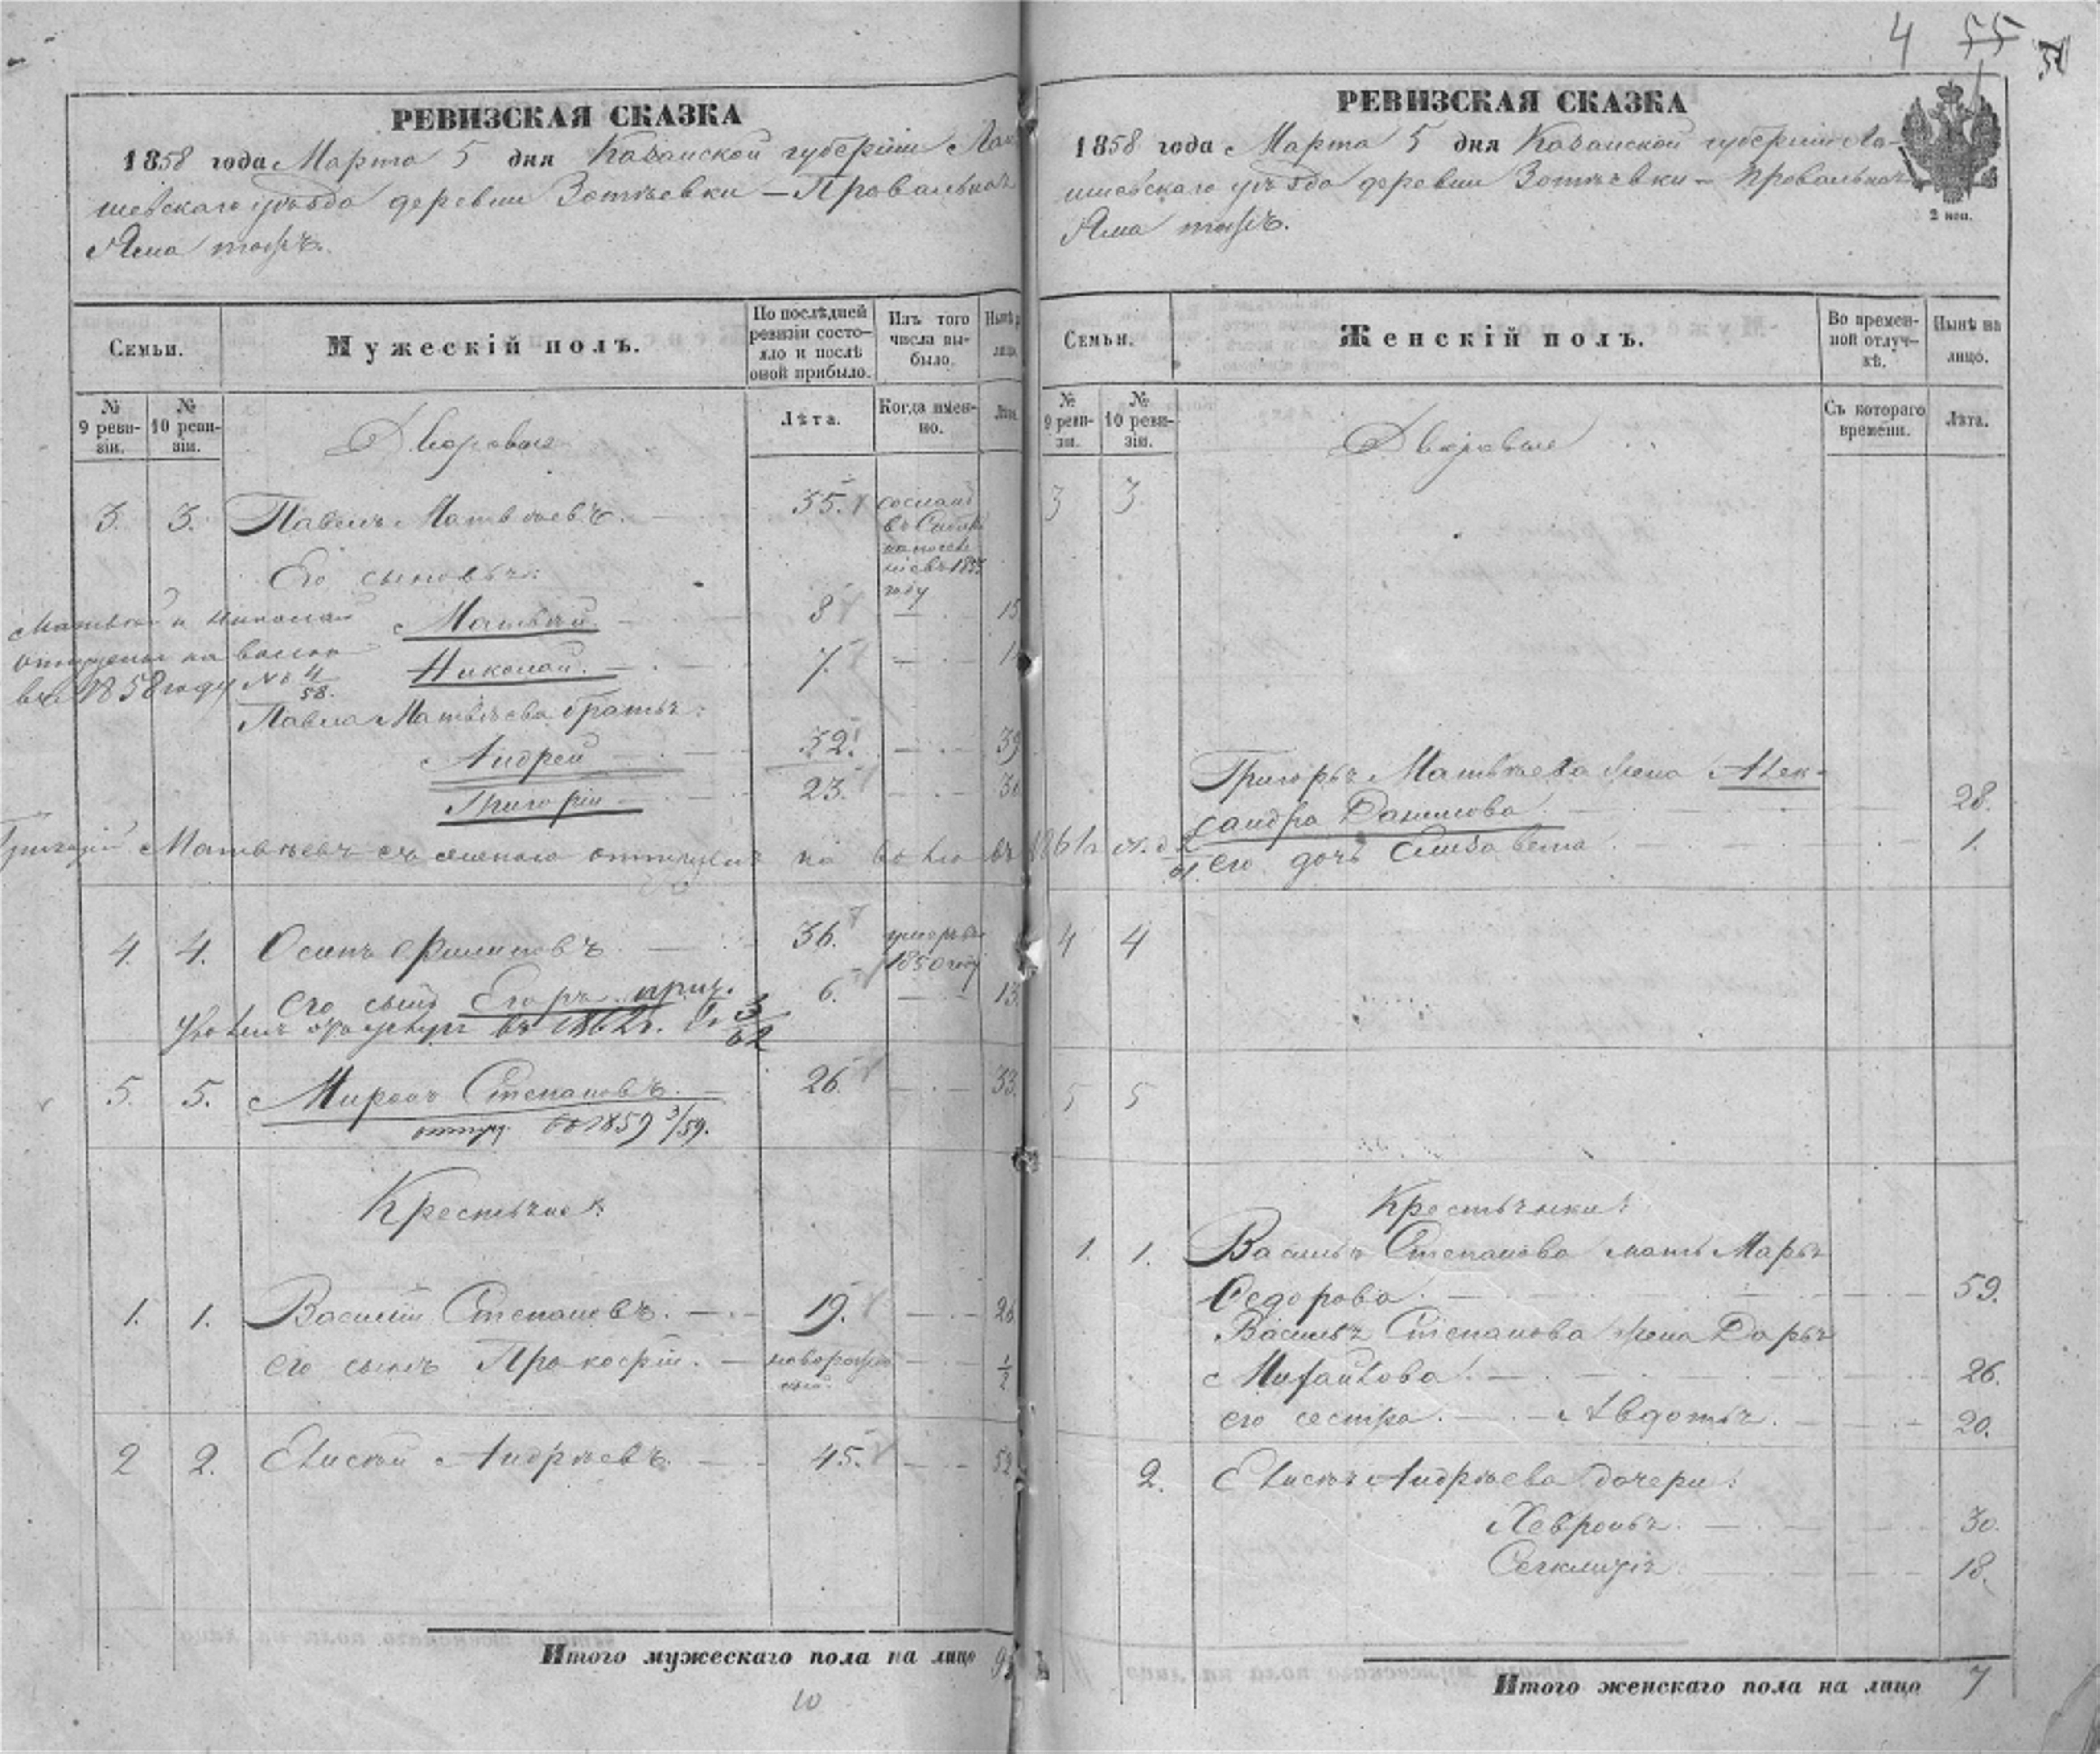 4 55
РЕВИЗСКАЯ СКАЗКА
1858 года Марта 5 дня Казанской губерніи Лаи
шевскаго уѣзда деревни Зотѣевки — Провальная
Яма тожъ.
Семьи.
Мужескій полъ.
По послѣдней ревизіи состо-
яло и послѣ
оной прибыло.
Изъ того
числа вы-
было.
Нынѣ
лицо.
№
9 реви-
зіи.
№
10 реви-
зіи.
Лѣта.
Когда имен-
но.
Лѣта.
Дворовые
3. 3. Павелъ Матвѣевъ. 35. сосланъ
въ Сибирь
на поселе
ніе въ 1855
году
Его сыновья:
Матвѣй 8 15
Николай. 7. 1
Матвѣй и Николай
отпущены на волю
въ 1858 году № 4/58.
Павла Матвѣева братья:
Андрей 32. 39
Григорій 23. 30
Григорій Матвѣевъ съ женою отпущенъ на волю въ 1861 г. №
4. 4. Осипъ Филиповъ 36. умеръ въ
1850 году
его сынъ Егоръ 6. 13.
уволенъ въ 1862 г. 3/62
5. 5. Миронъ Степановъ. 26 33.
отпущ. въ 1859 3/59.
Крестьяне:
1. 1. Василій Степановъ. 19. 26
его сынъ Прокофій. новорожден
ный. 1/2
2 2. Елисѣй Андрѣевъ. 45. 52
Итого мужескаго пола на лицо 9
10
РЕВИЗСКАЯ СКАЗКА
2 коп.
1858 года Марта 5 дня Казанской губерніи Лаи-
шевскаго уѣзда деревни Зотѣевки — Провальная
Яма тожъ.
Семьи.
Женскій полъ.
Во времен-
ной отлуч-
кѣ.
Нынѣ на
лицо.
№
9 реви-
зіи.
№
10 реви-
зіи.
Съ котораго
времени.
Лѣта.
Дворовые
3 3
Григорья Матвѣева жена Алек-
сандра Данилова 28.
его дочь Елизавета 1.
4 4
5 5
Крестьянки:
1. 1. Василья Степанова мать Марья
Федорова. 59.
Василья Степанова жена Дарья
Михайлова. 26.
его сестра. Авдотья. 20.
2. Елисѣя Андрѣева дочери:
Хевронья. 30.
Секлитія 18.
Итого женскаго пола на лицо 7